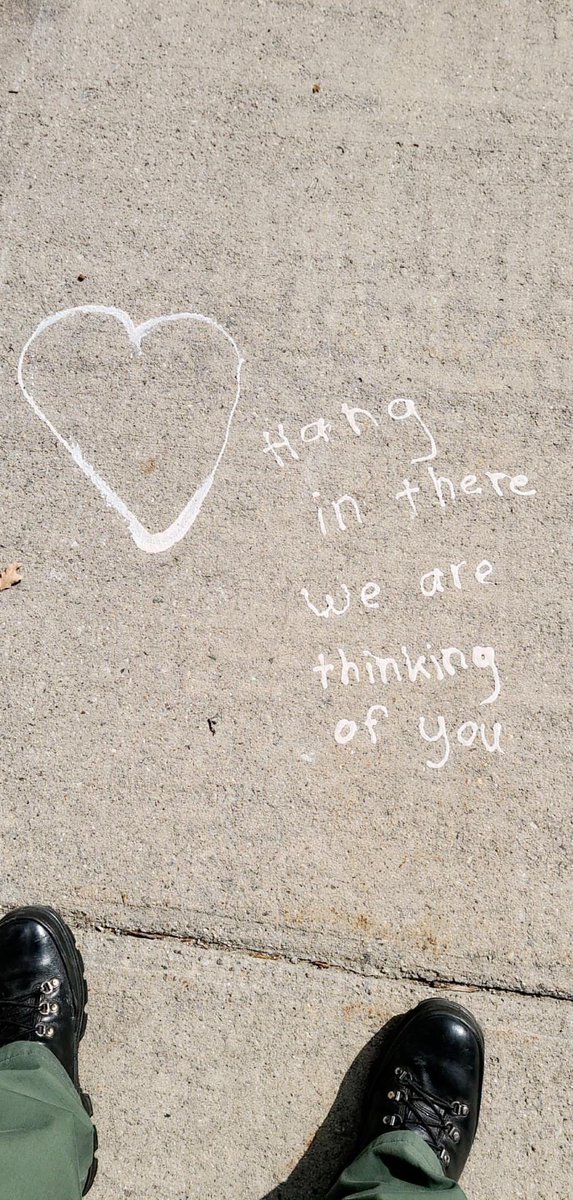 Hang
in there
we are
thinking
of you